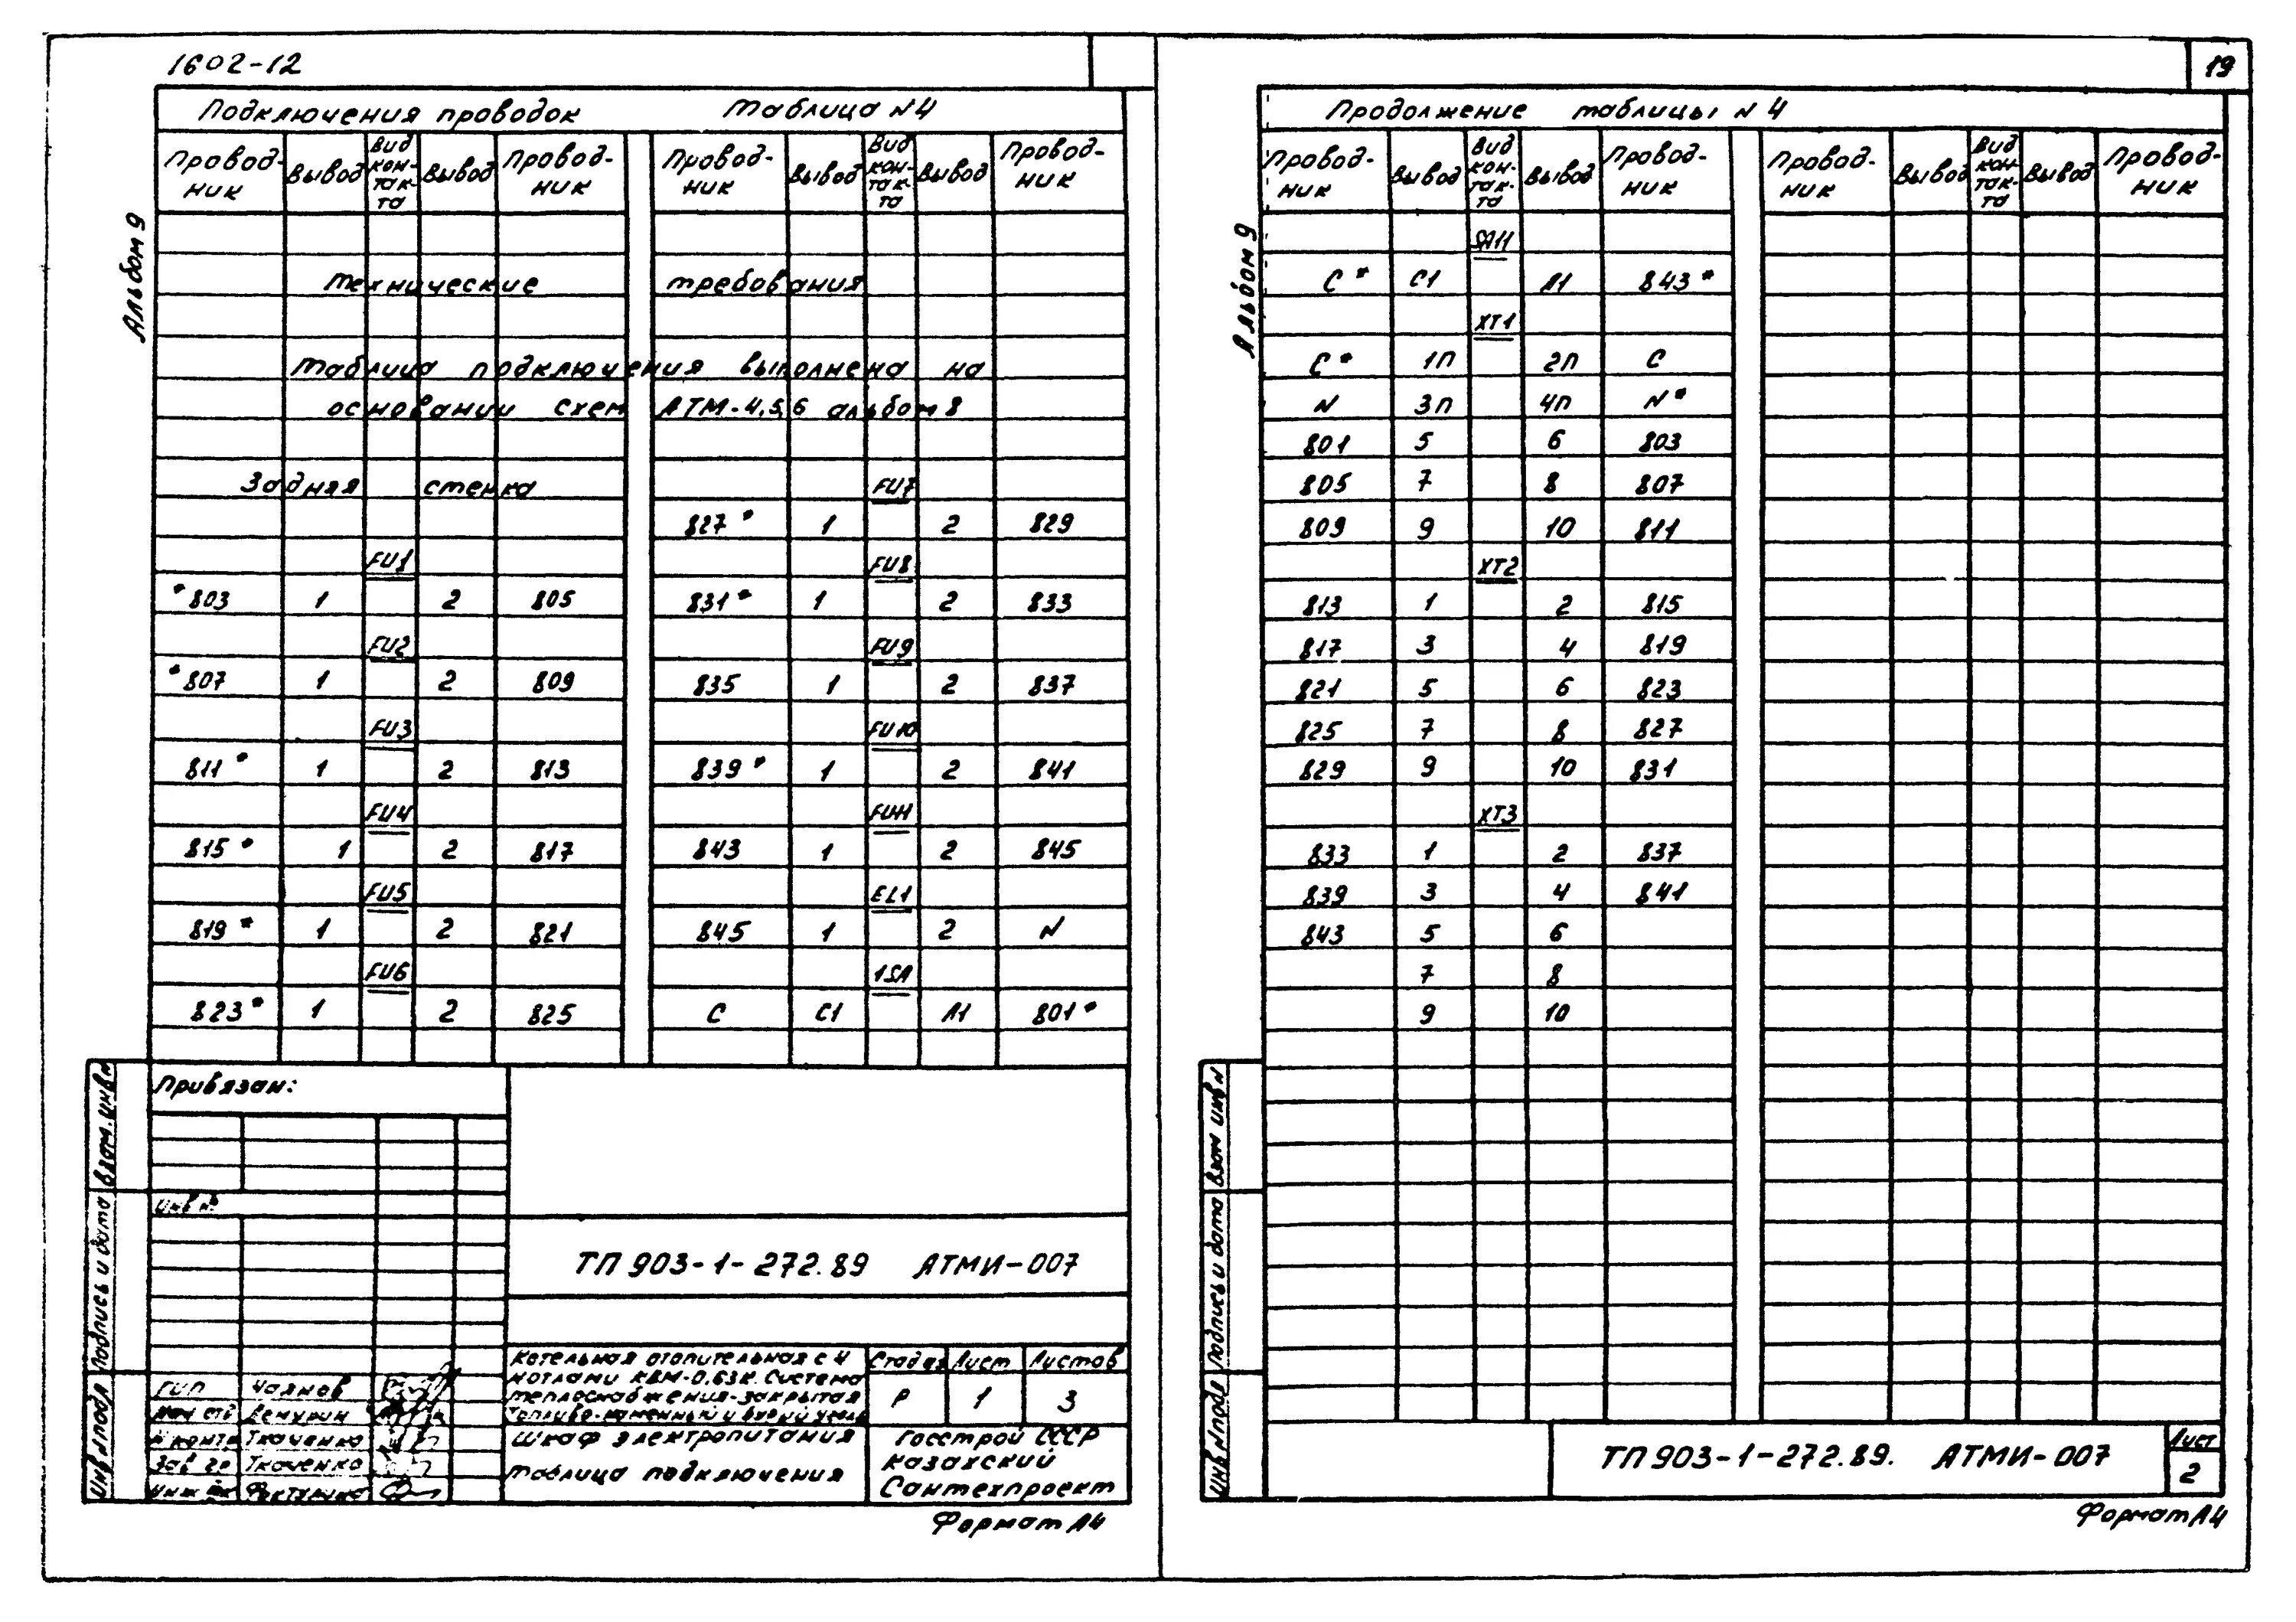 1602-12
19
Подключения проводок Таблица N4
Провод-ник Вывод Вид кон-так-та Вывод Провод-ник Провод-ник Вывод Вид кон-так-та Вывод Провод-ник
Альбом 9
Технические требования
Таблица подключения выполнена на
основании схем АТМ-4,5,6 альбом 8
Задняя стенка FU7
827* 1 2 829
FU1 FU8
*803 1 2 805 831* 1 2 833
FU2 FU9
*807 1 2 809 835 1 2 837
FU3 FU10
811* 1 2 813 839* 1 2 841
FU4 FU11
815* 1 2 817 843 1 2 845
FU5 EL1
819* 1 2 821 845 1 2 N
FU6 1SA
823* 1 2 825 С С1 Л1 801*
Привязан:
Инв N
ТП 903-1-272.89 АТМИ-007
Котельная отопительная с 4
котлами КВМ-0,63К. Система
теплоснабжения-закрытая
Топливо-каменный и бурый уголь
Стадия Лист Листов
Р 1 3
ГИП Чаянов
Нач отд
Н контр Ткаченко
Зав гр Ткаченко
Шкаф электропитания
Таблица подключения
Госстрой СССР
Казахский
Сантехпроект
Инв N подл Подпись и дата Взам. инв N
Формат А4
Продолжение таблицы N 4
Провод-ник Вывод Вид кон-так-та Вывод Провод-ник Провод-ник Вывод Вид кон-так-та Вывод Провод-ник
Альбом 9
SA11
С* С1 Л1 843*
XT1
С* 1п 2п С
N 3п 4п N*
801 5 6 803
805 7 8 807
809 9 10 811
XT2
813 1 2 815
817 3 4 819
821 5 6 823
825 7 8 827
829 9 10 831
XT3
833 1 2 837
839 3 4 841
843 5 6
7 8
9 10
Инв N подл Подпись и дата Взам инв N
ТП 903-1-272.89. АТМИ-007
Лист
2
Формат А4